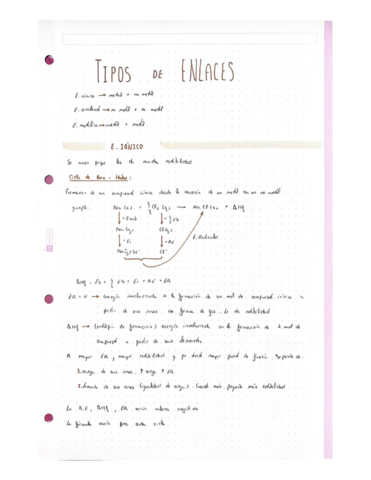 TIPOS DE ENLACES
E. iónico → metal + no metal
E. covalente → no metal + no metal
E. metálico → metal + metal
E. IÓNICO
Se unen para de mucha estabilidad
Ciclo de Born - Haber:
Formación de un compuesto iónico desde la reacción de un metal con un no metal
ejemplo: Na (s) + ½ Cl₂ (g) → NaCl (s) + ΔHf
↓ + Esub ↓ + ½ ED
Na (g) Cl (g) E. Reticular
↓ + Ei ↓ + AE
Na⁺(g) + e⁻ Cl⁻
ΔHf = Es + ½ ED + Ei + AE + ER
ER = U → energía involucrada en la formación de un mol de compuesto iónico a
partir de sus iones en forma de gas. de estabilidad
ΔHf → (entalpía de formación) energía involucrada en la formación de 1 mol de
compuesto a partir de sus elementos
A mayor ER, mayor estabilidad y por tanto mayor punto de fusión. Depende de:
1. carga de sus iones. ↑ carga ↑ ER
2. tamaño de sus iones (igualdad de carga). Cuanto más pequeño más estabilidad
La A.E, ΔHf, ER serán valores negativos
La fórmula sería para este ciclo